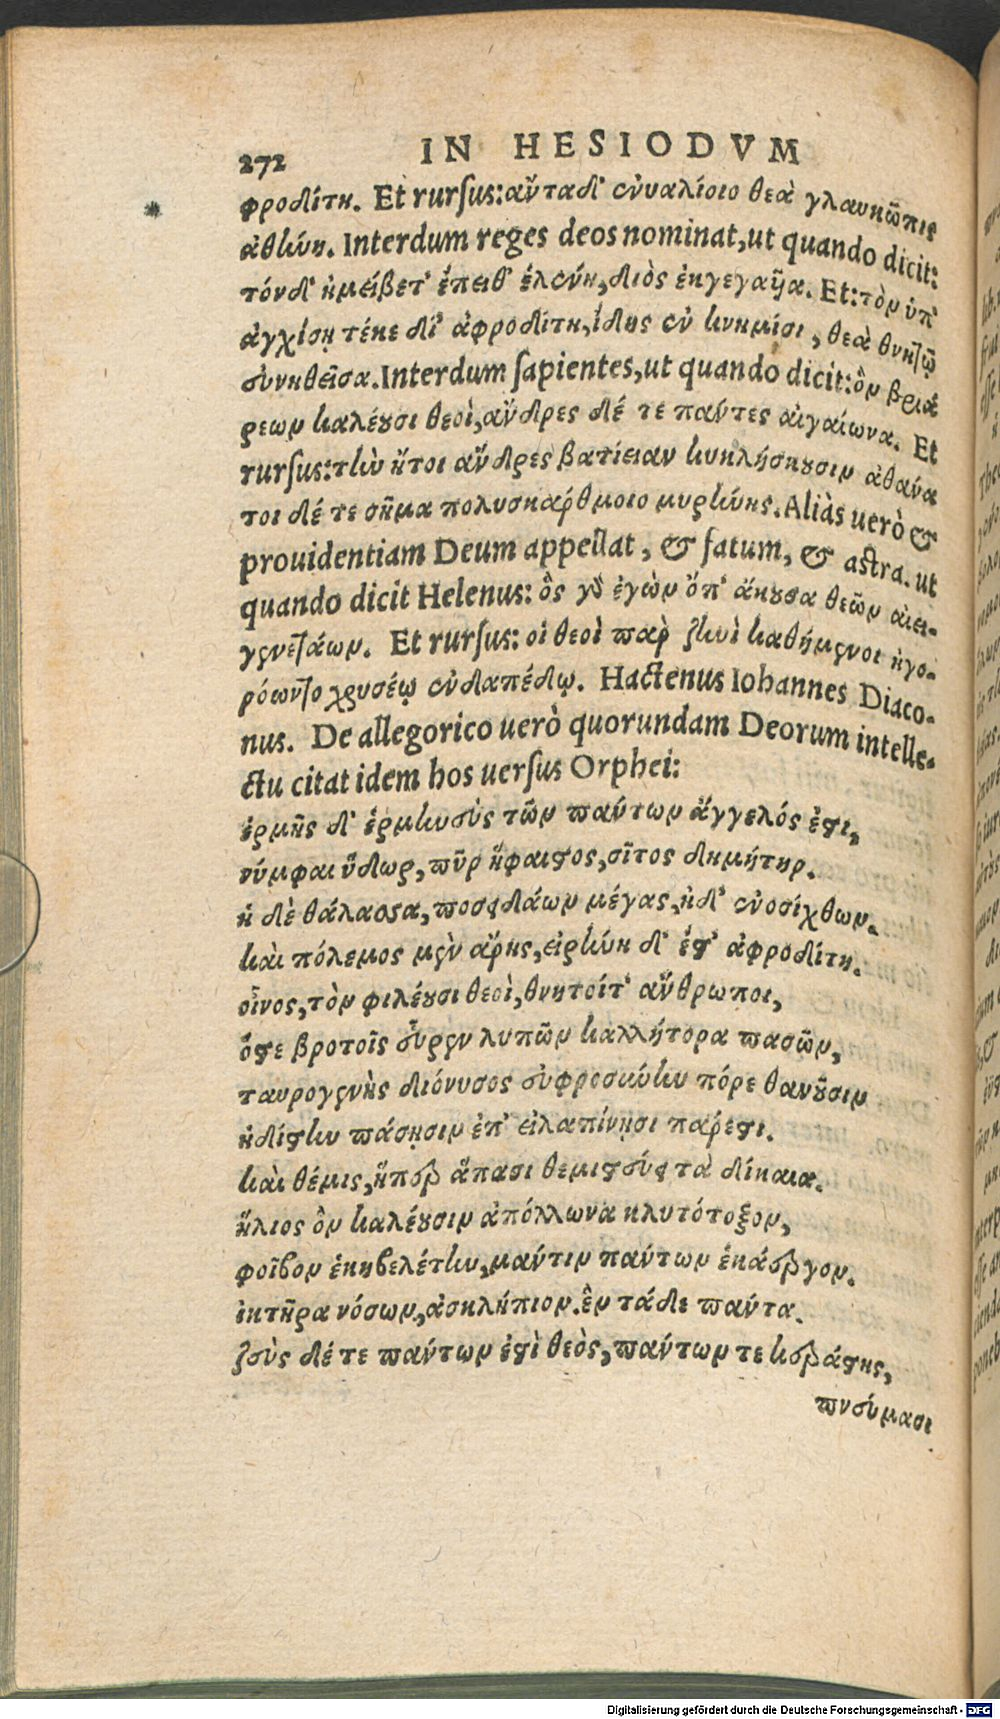 272 IN HESIODVM
φροδίτη. Et rursus: αὖτα δ' ἐνυαλίοιο θεὰ γλαυκῶπις
ἀθήνη. Interdum reges deos nominat, ut quando dicit:
τόνδ' ἠμείβετ' ἔπειθ' ἑλένη, διὸς ἐκγεγαῦα. Et: τὸν ὑπ'
ἀγχίσῃ τέκε δῖ' ἀφροδίτη, ἴδης ἐν κνημοῖσι, θεὰ θνητῷ
συνηθεῖσα. Interdum sapientes, ut quando dicit: ὃν βριά
ρεων καλέουσι θεοὶ, ἄνδρες δέ τε πάντες αἰγαίωνα. Et
rursus: τὴν ἤτοι ἄνδρες βατίειαν κικλήσκουσιν ἀθάνα
τοι δέ τε σῆμα πολυσκάρθμοιο μυρίνης. Aliàs uerò &
prouidentiam Deum appellat, & fatum, & astra. ut
quando dicit Helenus: ὃς γὰρ ἐγὼν ὄπ' ἄκουσα θεῶν αἰει-
γενετάων. Et rursus: οἱ θεοὶ παρ ζηνὶ καθήμενοι ἠγο-
ρόωντο χρυσέῳ ἐν δαπέδῳ. Hactenus Iohannes Diaco-
nus. De allegorico uerò quorundam Deorum intelle-
ctu citat idem hos uersus Orphei:
ἑρμῆς δ' ἑρμηνεὺς τῶν πάντων ἄγγελός ἐστι,
νύμφαι ὕδωρ, πῦρ ἥφαιστος, σῖτος δημήτηρ.
ἡ δὲ θάλασσα, ποσειδάων μέγας, ἠδ' ἐνοσίχθων.
καὶ πόλεμος μὲν ἄρης, εἰρήνη δ' ἔστ' ἀφροδίτη.
οἶνος, τὸν φιλέουσι θεοὶ, θνητοίτ' ἄνθρωποι,
ὅστε βροτοῖς εὗρεν λυπῶν καλλήτορα πασῶν,
ταυρογενὴς διόνυσος εὐφροσύνην πόρε θανοῦσιν
ἡδίστην πάσῃσιν ἐπ' εἰλαπίνῃσι πάρεστι.
καὶ θέμις, ἥπερ ἅπασι θεμιστεύει τὰ δίκαια.
ἥλιος ὃν καλέουσιν ἀπόλλωνα κλυτότοξον,
φοῖβον ἑκηβελέτην, μάντιν πάντων ἑκάεργον.
ἰητῆρα νόσων, ἀσκλήπιον. ἓν τάδε πάντα.
ζεὺς δέ τε πάντων ἐστὶ θεὸς, πάντων τε κεράστης,
πνεύμασι
Digitalisierung gefördert durch die Deutsche Forschungsgemeinschaft - DFG